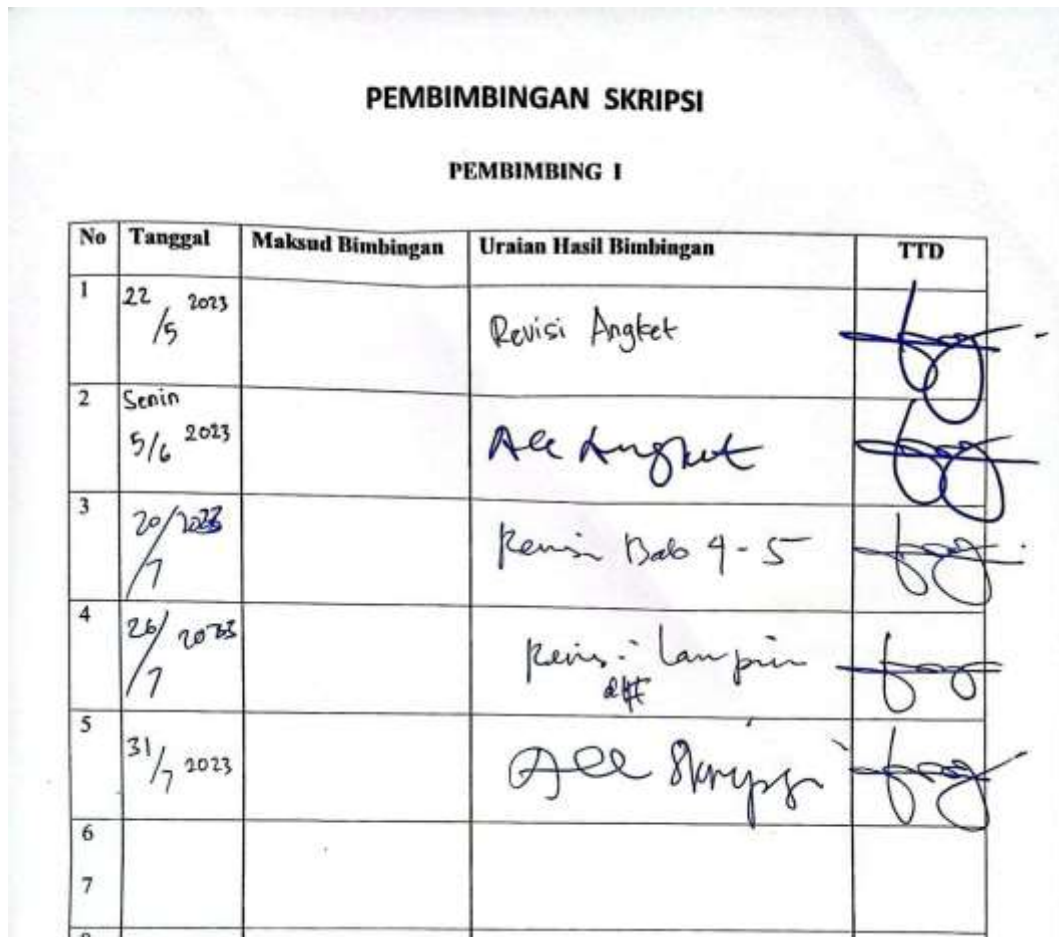 PEMBIMBINGAN SKRIPSI
PEMBIMBING I
No Tanggal Maksud Bimbingan Uraian Hasil Bimbingan TTD
1 22/5 2023 Revisi Angket
2 Senin 5/6 2023 Acc Angket
3 20/7 2023 Revisi Bab 4-5
4 26/7 2023 Revisi
5 31/7 2023 Acc Skripsi
6
7